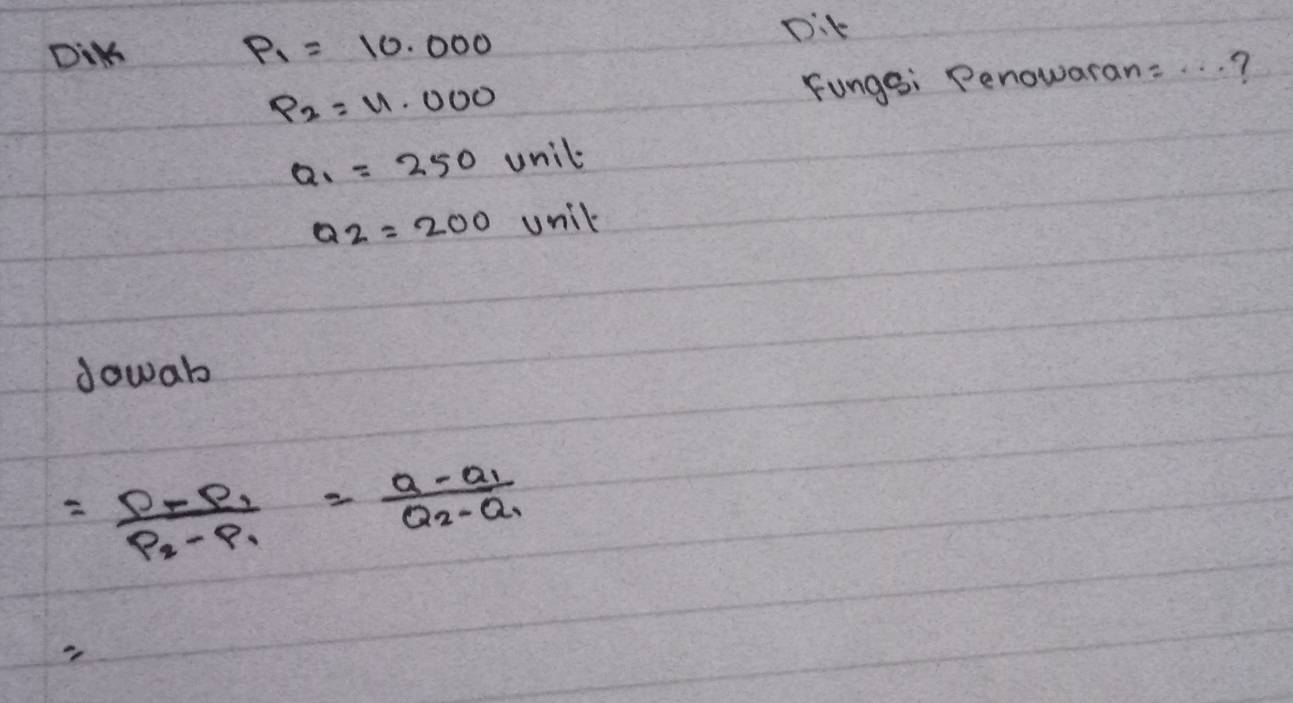 Dik P₁ = 10.000
P₂ = 4.000
Q₁ = 250 unit
Q2 = 200 unit
Dit
Fungsi Penawaran = ...?
Jawab
= P - P₁ / P₂ - P₁ = Q - Q₁ / Q₂ - Q₁
=